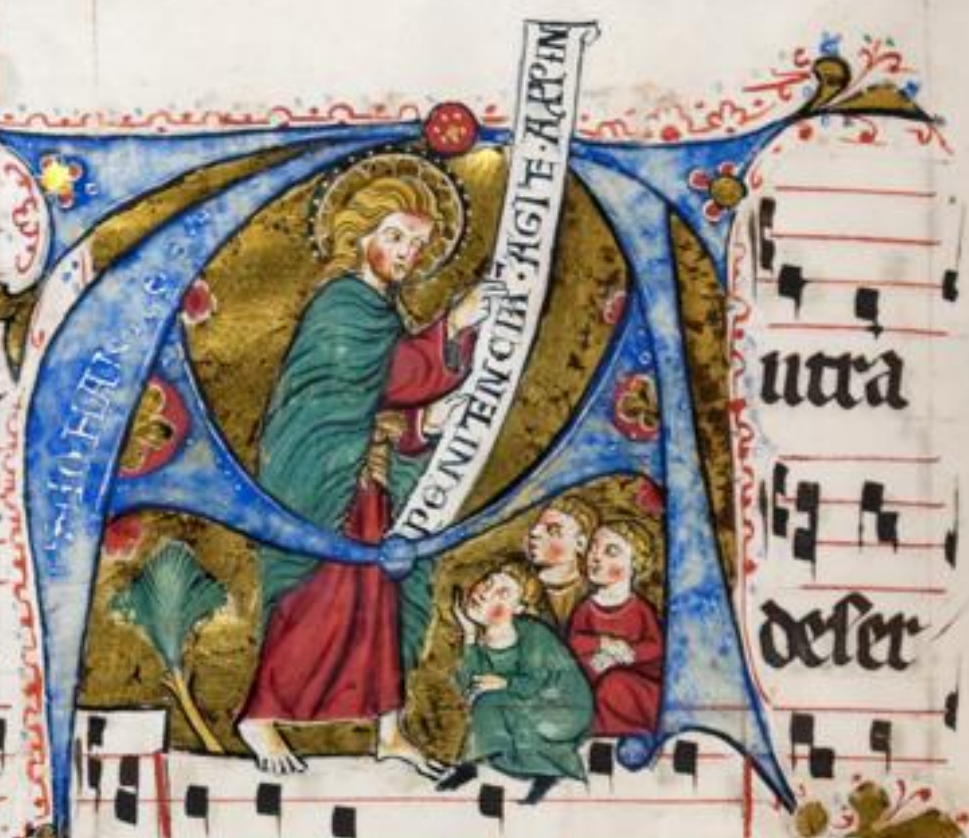 PONITENCIA · AGITE · APPIN
S · IOHANNES
utra
deser